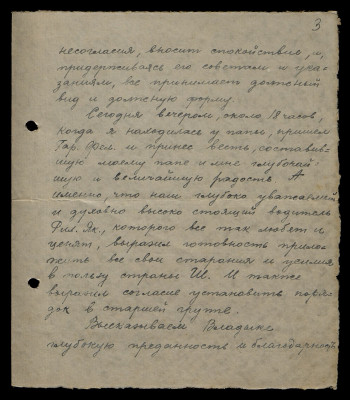 3
несогласия, вносит спокойствие, и,
придерживаясь его советам и ука-
заниям, все принимает должный
вид и должную форму.
Сегодня вечером, около 18 часов,
когда я находилась у папы, пришел
Гар. Фел. и принес весть, составив-
шую моему папе и мне глубочай-
шую и величайшую радость. А
именно, что наш глубоко уважаемый
и духовно высоко стоящий водитель
Фел. Як., которого все так любят и
ценят, выразил готовность прило-
жить все свои старания и усилия
в пользу страны Ш. И также
выразил согласие установить поря-
док в старшей группе.
Высказываем Владыке
глубокую преданность и благодарность